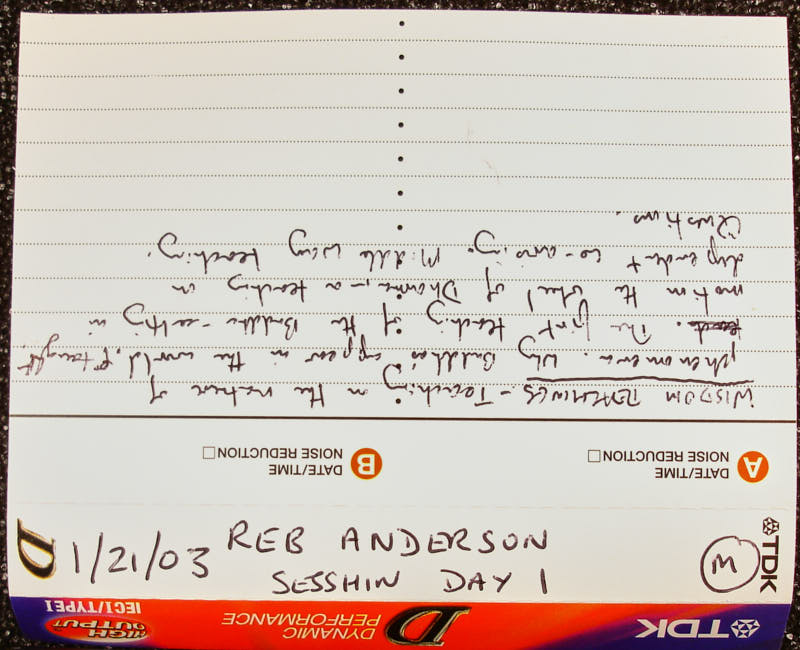 WISDOM TEACHINGS - Teaching on the nature of
phenomena. Why Buddhas appear in the world, & taught
The first teaching of the Buddha - setting in
motion the wheel of Dharma, - a teaching on
dependent co-arising. Middle way teaching.
Questions.
A
DATE/TIME
NOISE REDUCTION
B
DATE/TIME
NOISE REDUCTION
D
1/21/03
REB ANDERSON
SESSHIN DAY 1
M
TDK
TDK
D
DYNAMIC
PERFORMANCE
HIGH
OUTPUT
IECI/TYPE I